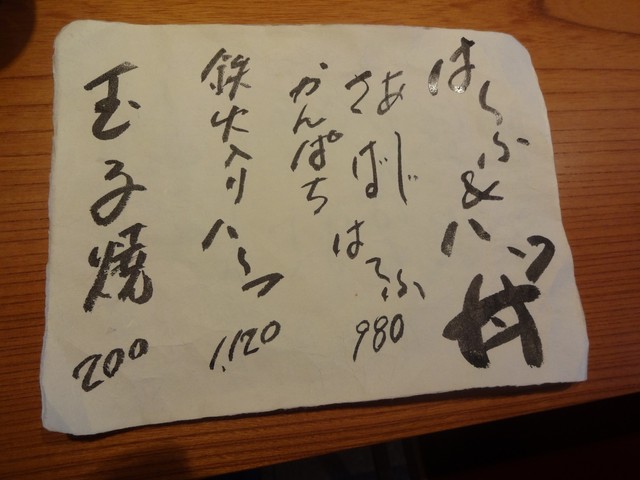 はふ&ハーフ丼
あじ
さば
はふ
980
かんぱち
鉄火入りハーフ
1,120
玉子焼
200